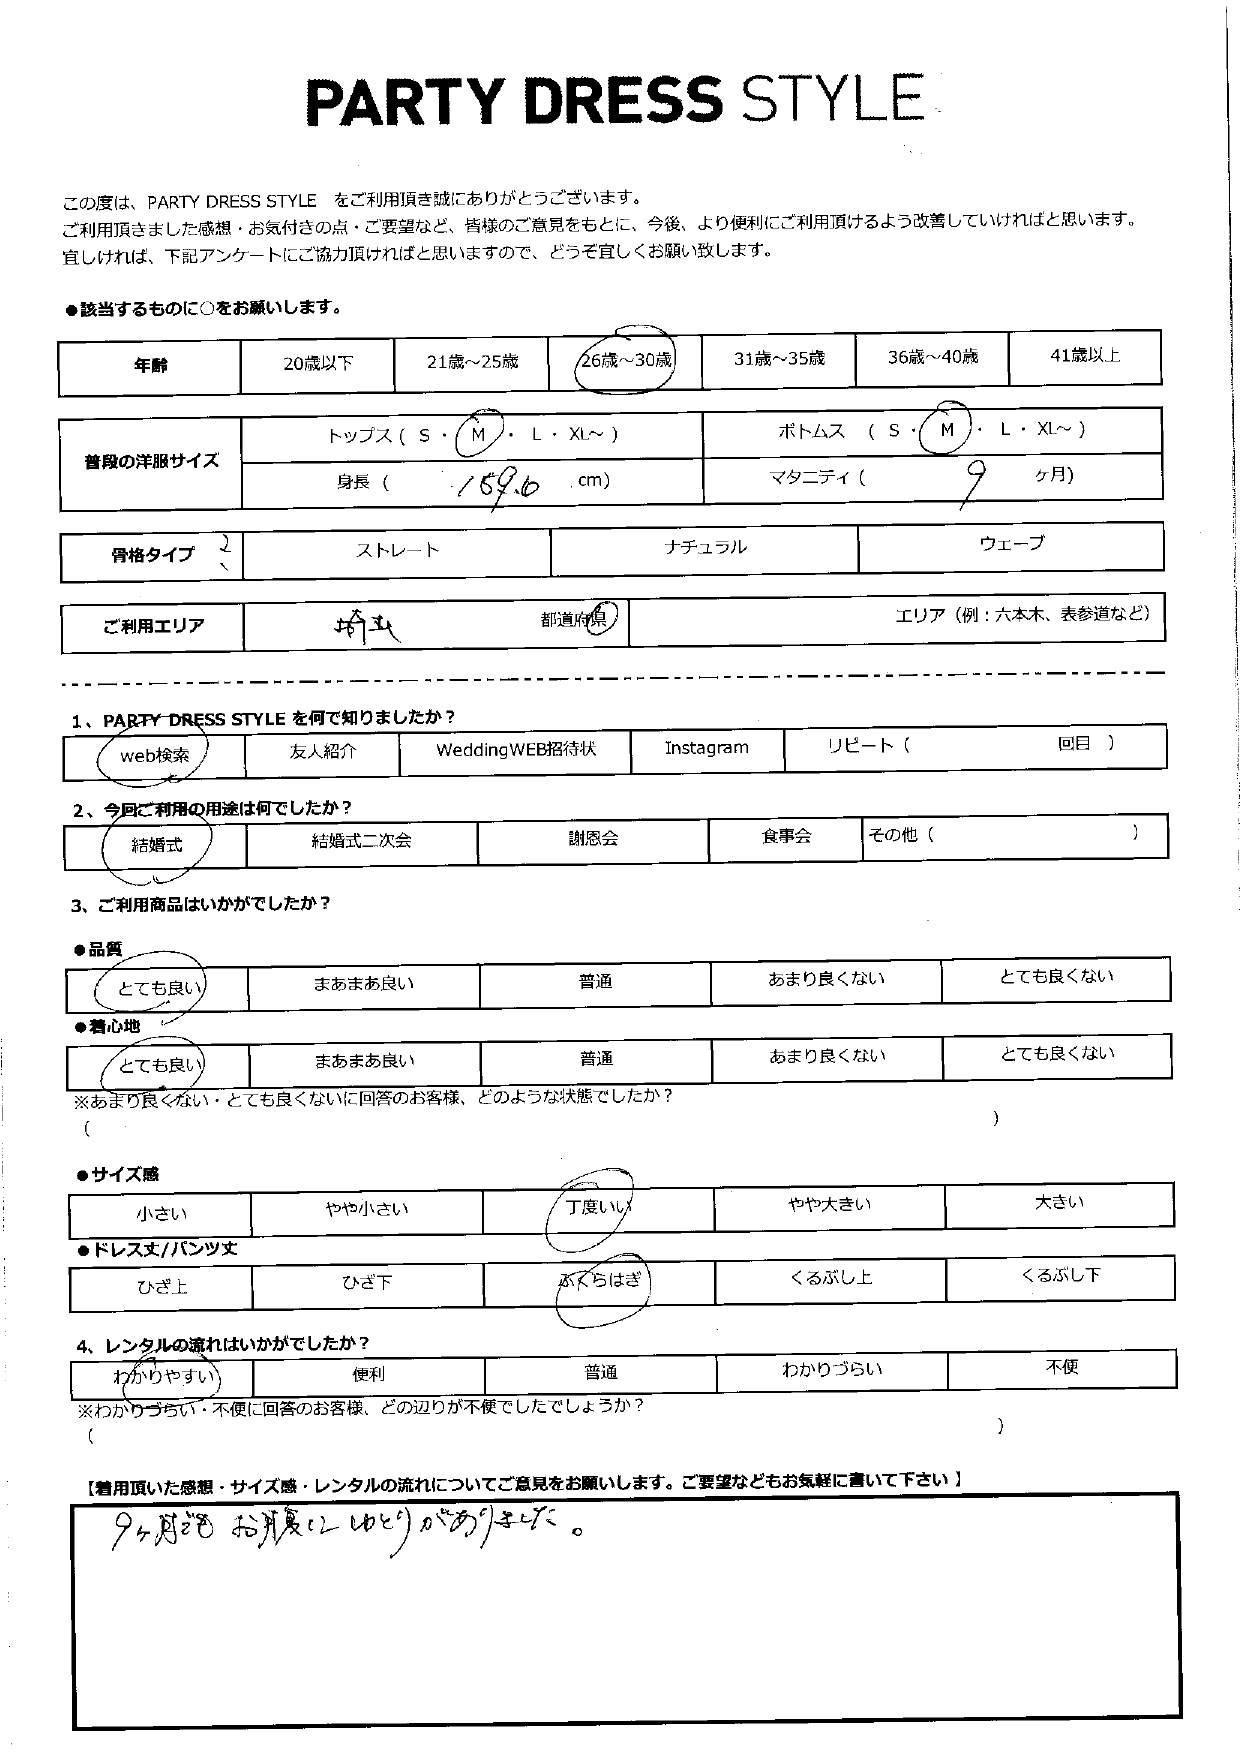 PARTY DRESS STYLE
この度は、PARTY DRESS STYLE　をご利用頂き誠にありがとうございます。
ご利用頂きました感想・お気付きの点・ご要望など、皆様のご意見をもとに、今後、より便利にご利用頂けるよう改善していければと思います。
宜しければ、下記アンケートにご協力頂ければと思いますので、どうぞ宜しくお願い致します。
●該当するものに○をお願いします。
年齢 20歳以下 21歳～25歳 26歳～30歳 31歳～35歳 36歳～40歳 41歳以上
普段の洋服サイズ トップス ( S ・ M ・ L ・ XL～ ) ボトムス ( S ・ M ・ L ・ XL～ )
身長 ( 159.6 cm) マタニティ ( 9 ヶ月)
骨格タイプ ストレート ナチュラル ウェーブ
ご利用エリア 埼玉 都道府県 エリア（例：六本木、表参道など）
1、PARTY DRESS STYLE を何で知りましたか？
web検索 友人紹介 WeddingWEB招待状 Instagram リピート ( 回目 )
2、今回ご利用の用途は何でしたか？
結婚式 結婚式二次会 謝恩会 食事会 その他 ( )
3、ご利用商品はいかがでしたか？
●品質
とても良い まあまあ良い 普通 あまり良くない とても良くない
●着心地
とても良い まあまあ良い 普通 あまり良くない とても良くない
※あまり良くない・とても良くないに回答のお客様、どのような状態でしたか？
( )
●サイズ感
小さい やや小さい 丁度いい やや大きい 大きい
●ドレス丈/パンツ丈
ひざ上 ひざ下 ふくらはぎ くるぶし上 くるぶし下
4、レンタルの流れはいかがでしたか？
わかりやすい 便利 普通 わかりづらい 不便
※わかりづらい・不便に回答のお客様、どの辺りが不便でしたでしょうか？
( )
【着用頂いた感想・サイズ感・レンタルの流れについてご意見をお願いします。ご要望などもお気軽に書いて下さい 】
9ヶ月でも お腹に ゆとりがありました。